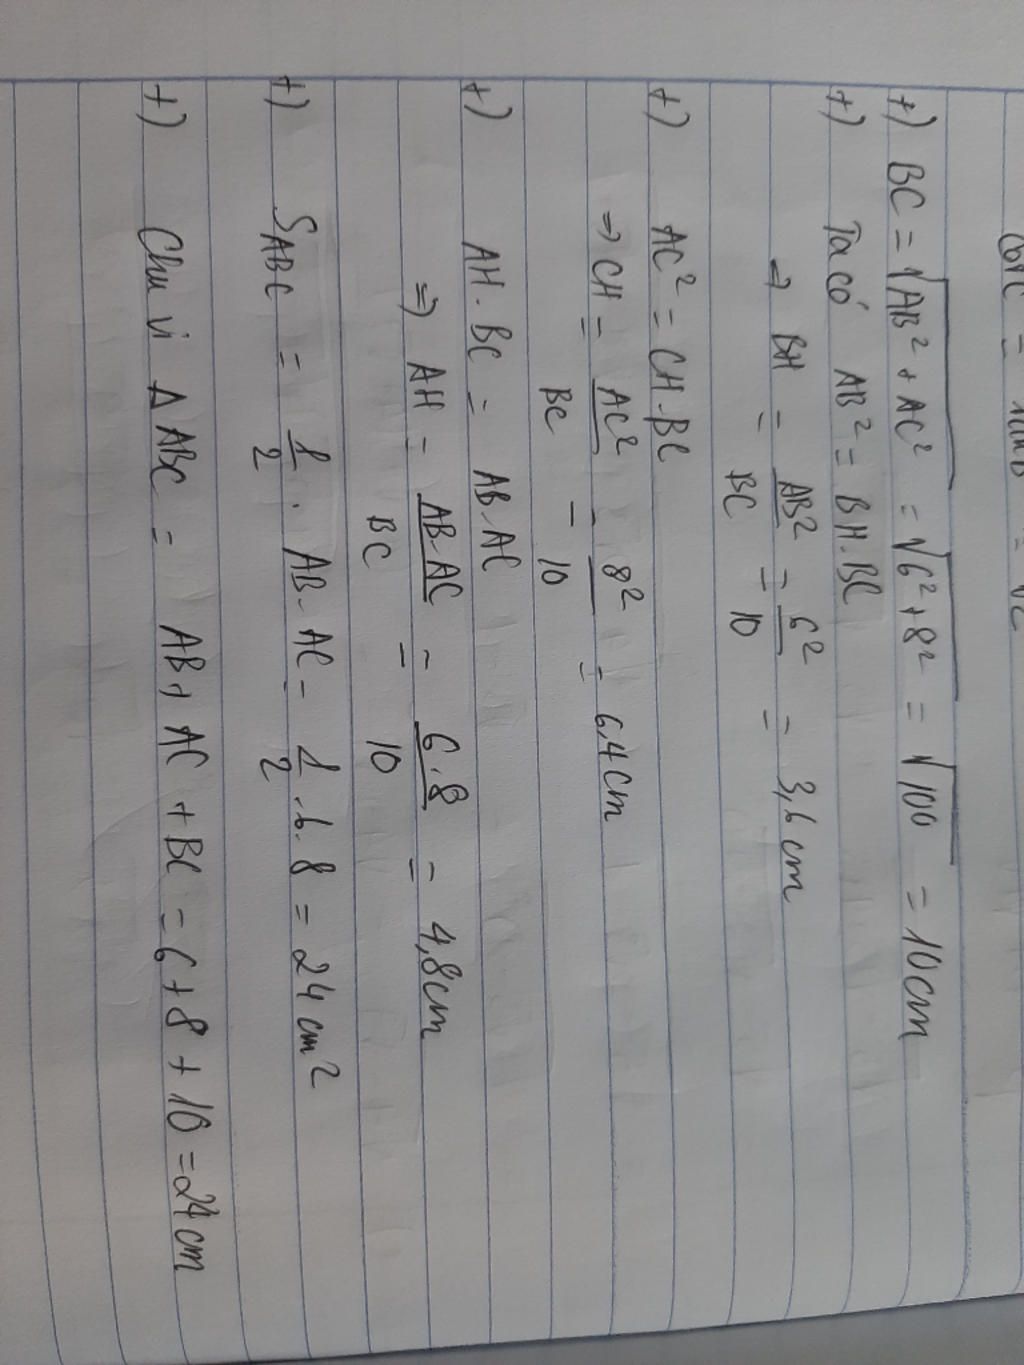 +) BC = √AB² + AC² = √6² + 8² = √100 = 10cm
+) Ta có AB² = BH.BC
=> BH = AB²/BC = 6²/10 = 3,6 cm
+) AC² = CH.BC
=> CH = AC²/BC = 8²/10 = 6,4cm
+) AH. BC = AB.AC
=> AH = AB.AC/BC = 6.8/10 = 4,8cm
+) SABC = 1/2 . AB. AC = 1/2 .6.8 = 24 cm²
+) Chu vi Δ ABC = AB + AC + BC = 6 + 8 + 10 = 24cm